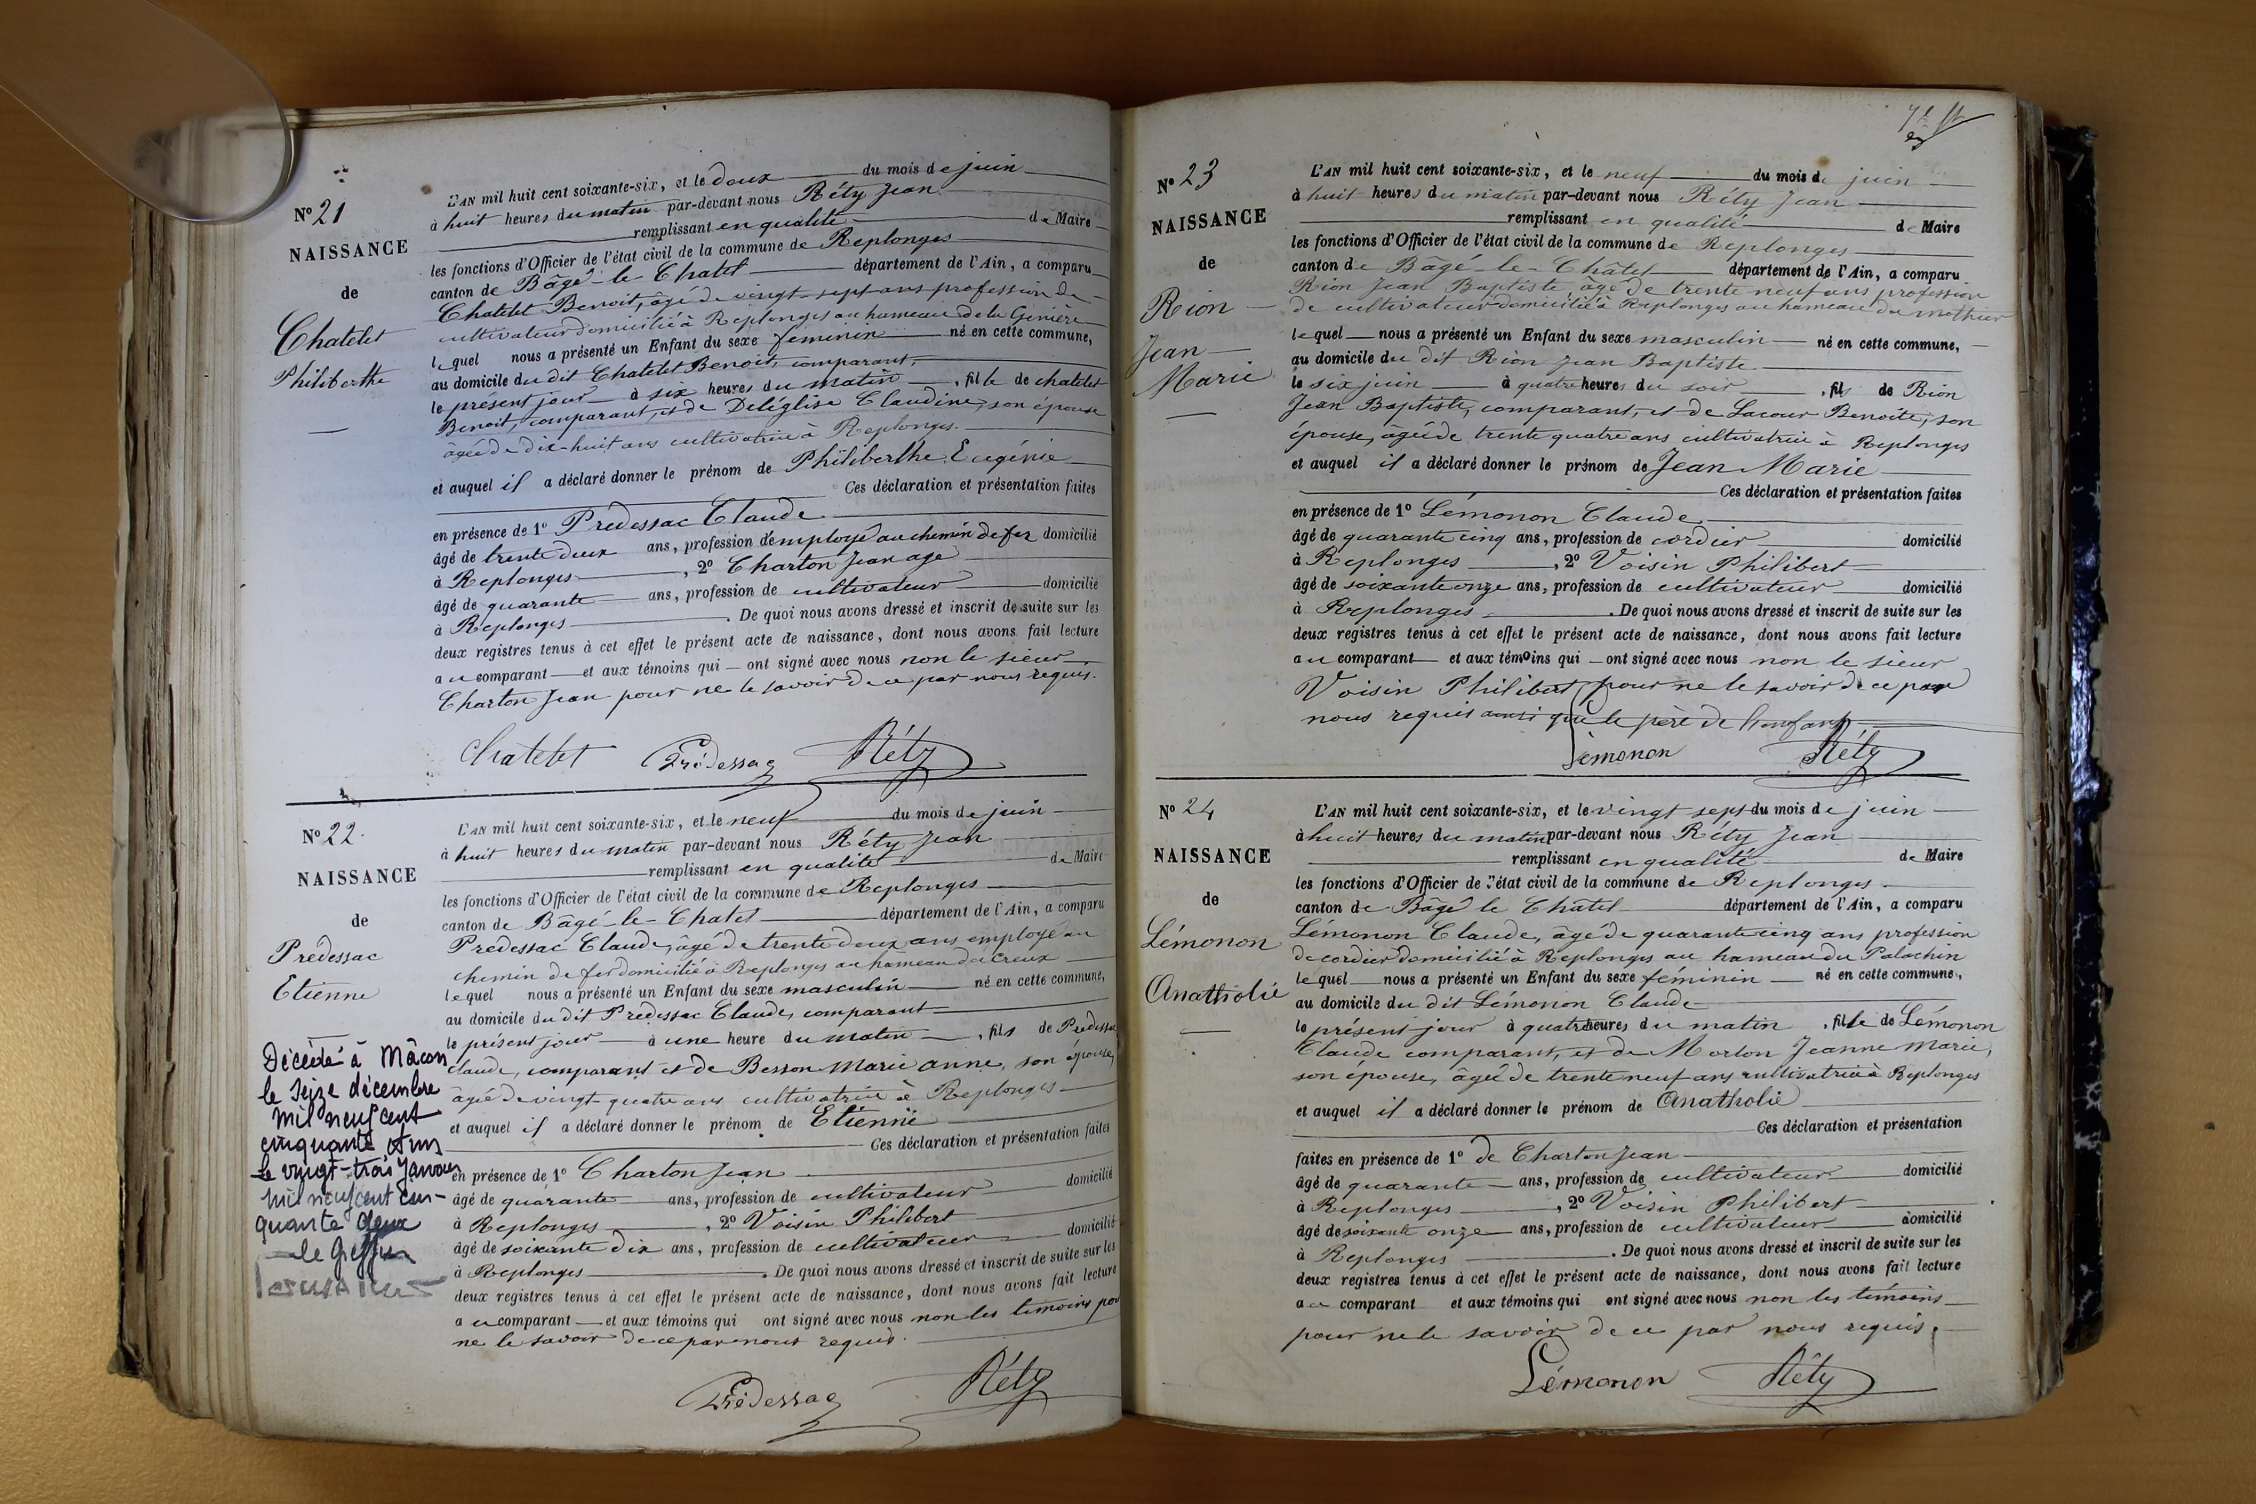 N° 21
NAISSANCE
de
Chatelet
Philiberthe
L'AN mil huit cent soixante-six, et le douz du mois de juin
à huit heures du matin par-devant nous Réty Jean
remplissant en qualité de Maire
les fonctions d'Officier de l'état civil de la commune de Replonges
canton de Bâgé-le-Chatel département de l'Ain, a comparu
Chatelet Benoit, âgé de vingt-sept ans profession de
cultivateur domicilié à Replonges au hameau de la
lequel nous a présenté un Enfant du sexe féminin né en cette commune,
au domicile du dit Chatelet Benoit, comparant,
le présent jour à six heures du matin, fille de chatelet
Benoit, comparant, et de Deléglise Claudine, son épouse
âgée de dix-huit ans cultivatrice à Replonges.
et auquel il a déclaré donner le prénom de Philiberthe Eugénie
Ces déclaration et présentation faites
en présence de 1° Prédessac Claude
âgé de trente deux ans, profession d'employé au chemin de fer domicilié
à Replonges, 2° Charton Jean age
âgé de quarante ans, profession de cultivateur domicilié
à Replonges. De quoi nous avons dressé et inscrit de suite sur les
deux registres tenus à cet effet le présent acte de naissance, dont nous avons fait lecture
au comparant et aux témoins qui ont signé avec nous non le sieur
Charton Jean pour ne le savoir de ce par nous requis.
Chatelet Prédessac Réty
N° 22.
NAISSANCE
de
Prédessac
Etienne
Décédé à Mâcon
le seize décembre
mil neuf cent
cinquante et un
le vingt-trois janvier
mil neuf cent cin-
quante deux
le Greffier
L'AN mil huit cent soixante-six, et le neuf du mois de juin
à huit heures du matin par-devant nous Réty Jean
remplissant en qualité de Maire
les fonctions d'Officier de l'état civil de la commune de Replonges
canton de Bâgé-le-Chatel département de l'Ain, a comparu
Prédessac Claude, âgé de trente deux ans employé au
chemin de fer domicilié à Replonges au hameau du Creux
lequel nous a présenté un Enfant du sexe masculin né en cette commune,
au domicile du dit Prédessac Claude, comparant
le présent jour à une heure du matin, fils de Prédessac
Claude, comparant et de Besson Marie anne, son épouse,
âgée de vingt-quatre ans cultivatrice à Replonges
et auquel il a déclaré donner le prénom de Etienne
Ces déclaration et présentation faites
en présence de 1° Charton Jean
âgé de quarante ans, profession de cultivateur domicilié
à Replonges, 2° Voisin Philibert
âgé de soixante dix ans, profession de cultivateur domicilié
à Replonges. De quoi nous avons dressé et inscrit de suite sur les
deux registres tenus à cet effet le présent acte de naissance, dont nous avons fait lecture
au comparant et aux témoins qui ont signé avec nous non les témoins pour
ne le savoir de ce par nous requis.
Prédessac Réty
N° 23
NAISSANCE
de
Rion
Jean
Marie
L'AN mil huit cent soixante-six, et le neuf du mois de juin
à huit heures du matin par-devant nous Réty Jean
remplissant en qualité de Maire
les fonctions d'Officier de l'état civil de la commune de Replonges
canton de Bâgé-le-Châtel département de l'Ain, a comparu
Rion Jean Baptiste âgé de trente neuf ans profession
de cultivateur domicilié à Replonges au hameau du mothier
lequel nous a présenté un Enfant du sexe masculin né en cette commune,
au domicile du dit Rion Jean Baptiste
le six juin à quatre heures du soir, fils de Rion
Jean Baptiste, comparant, et de Lacour Benoîte, son
épouse, âgée de trente quatre ans cultivatrice à Replonges
et auquel il a déclaré donner le prénom de Jean Marie
Ces déclaration et présentation faites
en présence de 1° Lémonon Claude
âgé de quarante cinq ans, profession de cordier domicilié
à Replonges, 2° Voisin Philibert
âgé de soixante onze ans, profession de cultivateur domicilié
à Replonges. De quoi nous avons dressé et inscrit de suite sur les
deux registres tenus à cet effet le présent acte de naissance, dont nous avons fait lecture
au comparant et aux témoins qui ont signé avec nous non le sieur
Voisin Philibert pour ne le savoir de ce par
nous requis ainsi que le père de l'enfant
Lémonon Réty
N° 24
NAISSANCE
de
Lémonon
Anatholie
L'AN mil huit cent soixante-six, et le vingt sept du mois de juin
à huit heures du matin par-devant nous Réty Jean
remplissant en qualité de Maire
les fonctions d'Officier de l'état civil de la commune de Replonges
canton de Bâgé le Châtel département de l'Ain, a comparu
Lémonon Claude, âgé de quarante cinq ans profession
de cordier domicilié à Replonges au hameau du Palachin
lequel nous a présenté un Enfant du sexe féminin né en cette commune,
au domicile du dit Lémonon Claude
le présent jour à quatre heures du matin, fille de Lémonon
Claude comparant, et de Morlon Jeanne Marie,
son épouse, âgée de trente neuf ans cultivatrice à Replonges
et auquel il a déclaré donner le prénom de Anatholie
Ces déclaration et présentation
faites en présence de 1° de Charton Jean
âgé de quarante ans, profession de cultivateur domicilié
à Replonges, 2° Voisin Philibert
âgé de soixante onze ans, profession de cultivateur domicilié
à Replonges. De quoi nous avons dressé et inscrit de suite sur les
deux registres tenus à cet effet le présent acte de naissance, dont nous avons fait lecture
au comparant et aux témoins qui ont signé avec nous non les témoins
pour ne le savoir de ce par nous requis.
Lémonon Réty